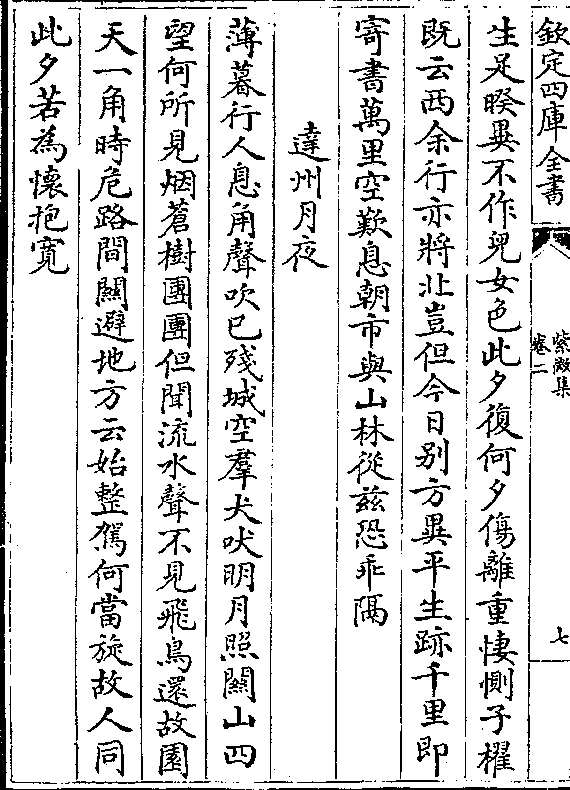 欽定四庫全書
紫巖集
卷二
七
生足暌異不作兒女色此夕復何夕傷離重悽惻子櫂
既云西余行亦將北豈但今日別方異平生跡千里即
寄書萬里空歎息朝市與山林從兹恐乖隔
達州月夜
薄暮行人息角聲吹已殘城空羣犬吠明月照關山四
望何所見烟蒼樹團團但聞流水聲不見飛鳥還故園
天一角時危路間關避地方云始整駕何當旋故人同
此夕若為懷抱寛